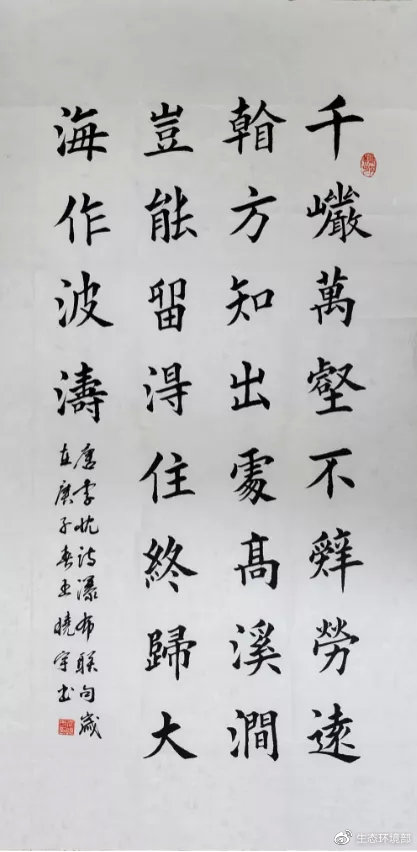 千巖萬壑不辤勞遠
看方知出處高溪澗
豈能留得住終歸大
海作波濤
唐李忱诗瀑布联句歲
在庚子春王曉宇书
生态环境部